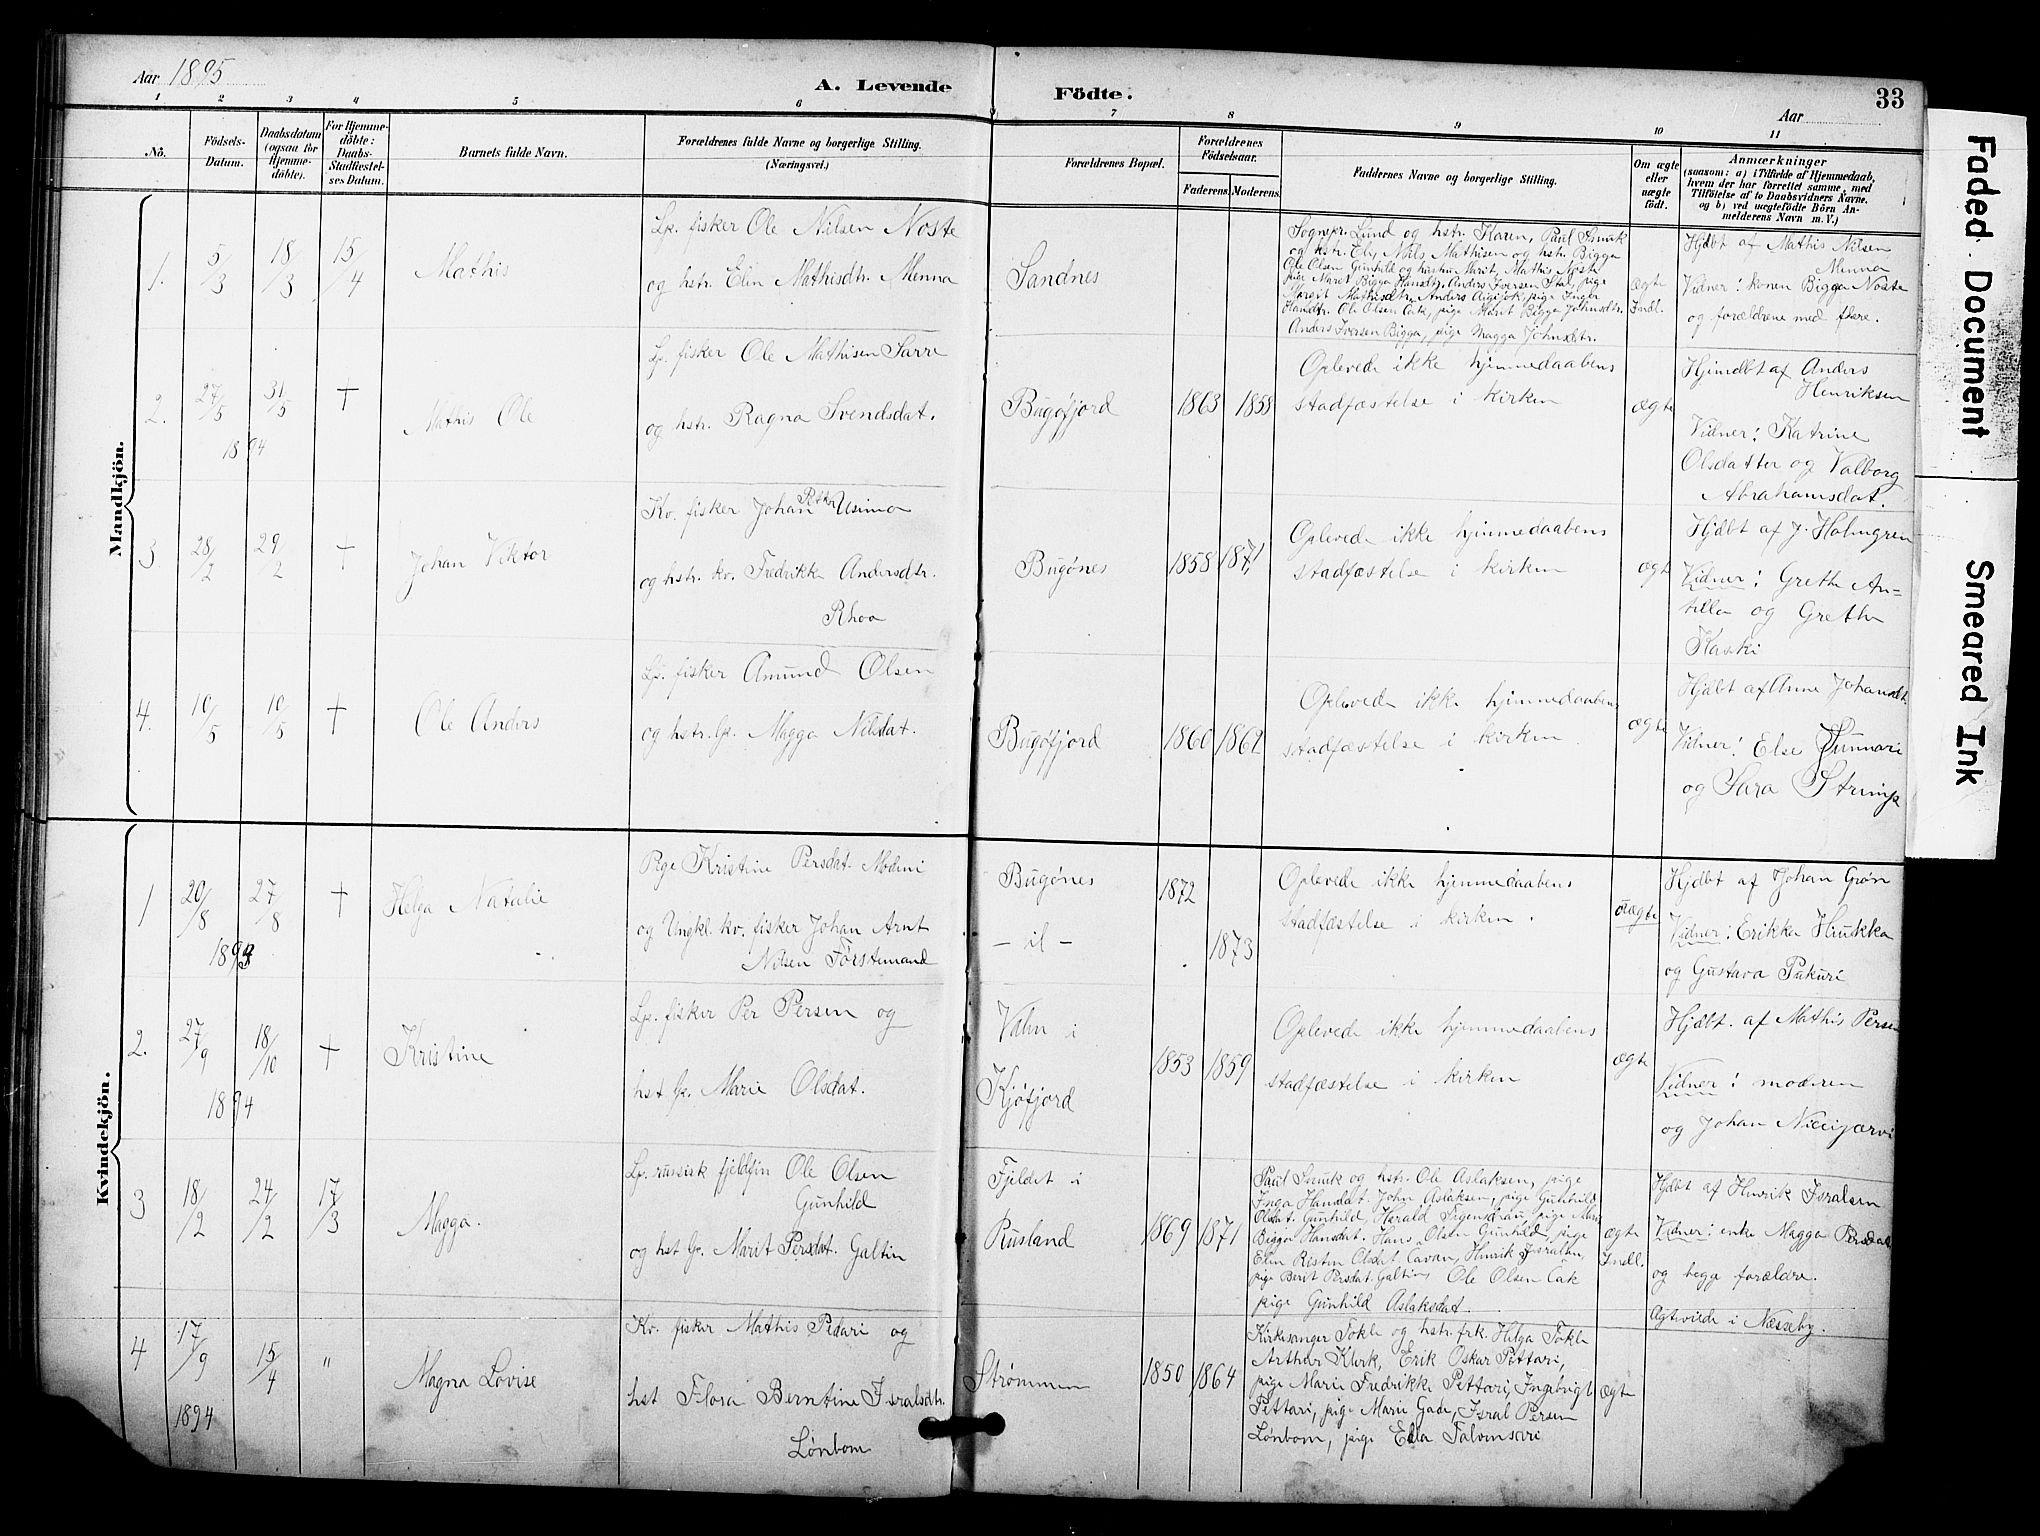 Aar 1895
A. Levende Födte.
Aar
33
1 2 3 4 5 6 7 8 9 10 11
No.
Födsels-
Datum.
Daabsdatum
(ogsaa for
Hjemme-
döbte).
For Hjemme-
döbte:
Daabs-
Stadfæstel-
ses Datum.
Barnets fulde Navn.
Forældrenes fulde Navne og borgerlige Stilling.
(Næringsvei.)
Forældrenes Bopæl.
Forældrenes
Födselsaar.
Faderens. Moderens.
Faddernes Navne og borgerlige Stilling.
Om ægte
eller
uægte
födt.
Anmærkninger
(saasom: a) i Tilfælde af Hjemmedaab,
hvem der har forrettet samme, med
Tilföielse af to Daabsvidners Navne.
og b) ved uægtefödte Börn An-
melderens Navn m. V.)
Mandkjön.
1. 5/3 18/3 15/4 Mathis
Lp. fisker Ole Nilsen Noste
og hstr. Elen Mathisdtr. Menna
Sandnes
Sognepr. Lund og hstr. Karen, Paul Smuk
og hstr. Els, Nils Mathisen og hstr. Bigga
Ole Olsen Gunhild og hustru Marit, Mathis Noste
pige Maret Bigga Hansdtr. Anders Iversen Stal, pige
Margit Mathisdtr. Anders Aigisok, pige Inger
Hansdtr. Ole Olsen Cak, pige Marit Bigga Johnsdtr.
Anders Iversen Bigga, pige Magga Johnsdtr.
ægte
Indl.
Hjdbt af Mathis Nilsen
Menna
Vidner: konen Bigga Noste
og forældrene med flere.
2. 27/5 31/5 †
1894
Mathis Ole
Lp. fisker Ole Mathisen Sarre
og hstr. Ragna Svendsdat.
Bugøfjord 1863 1858
Oplevede ikke hjemmedaabens
stadfæstelse i kirken
ægte
Hjemdbt af Anders
Henriksen
Vidner: Katrine
Olsdatter og Valborg
Abrahamsdat.
3 28/2 29/2 † Johan Viktor
Kv. fisker Johan Petter Usima
og hstr. kv. Fredrikke Andersdtr.
Rhoa
Bugønes 1858 1871
Oplevede ikke hjemmedaabens
stadfæstelse i kirken
ægte
Hjdbt af J. Holmgren
Vidner: Grethe An-
tilla og Grethe
Kaski
4. 10/5 10/5 † Ole Anders
Lp. fisker Amund Olsen
og hstr. lp. Magga Nilsdat.
Bugøfjord 1860 1862
Oplevede ikke hjemmedaabens
stadfæstelse i kirken
ægte
Hjdbt af Anne Johansdt.
Vidner: Else Sunnari
og Sara Strimp
Kvindekjön.
1 20/8 27/8 † Helga Natalie
Pige Kristine Persdat. Modeni
og Ungkl. kv. fisker Johan Arnt
Nilsen Förstemand
Bugønes 1872
– il – 1873
Oplevede ikke hjemmedaabens
stadfæstelse i kirken.
uægte
Hjdbt af Johan Grøn
Vidner: Erikka Hiukka
og Gustava Pakuri
2. 27/9 18/10 †
1894
Kristine
Lp. fisker Per Persen og
hst lp. Marie Olsdat.
Valen i
Kjøfjord
1853 1859
Oplevede ikke hjemmedaabens
stadfæstelse i kirken
ægte
Hjdbt. af Mathis Persen
Vidner: moderen
og Johan Niecijærvi
3 18/2 24/2 17/3 Magga.
Lp. russisk fjeldfin Ole Olsen
Gunhild
og hst lp. Marit Persdat. Galtin
Fjeldet i
Rusland
1869 1871
Paul Smuk og hstr. Ole Aslaksen, pige
Inga Hansdat. John Aslaksen, pige Gunhild
Olsdat. Gunhild, Harald pige Mari
Bigga Hansdat. Hans Olsen Gunhild, pige
Elen Ristin Olsdat Cavan, Henrik Isralsen,
pige Berit Persdat. Galtin, Ole Olsen Cak
pige Gunhild Aslaksdat.
ægte
Indl.
Hjdbt af Henrik Isralsen
Vidner: enke Magga Persdat
og begge forældre.
Ægteviede i Næsseby.
4 17/9 15/4 "
1894
Magna Lovise
Kv. fisker Mathis Pedari og
hst Flora Berntine Isralsdtr.
Lønbom
Strømmen 1850 1864
Kirkesanger Tokle og hstr. frk. Helga Tokle
Arthur Klerk, Erik Oskar Pettari,
pige Marie Fredrikke Pettari, Ingebrigt
Pettari, pige Marie Gade, Isral Persen
Lønbom, pige Edla Talvensari
ægte
Faded Document
Smeared Ink